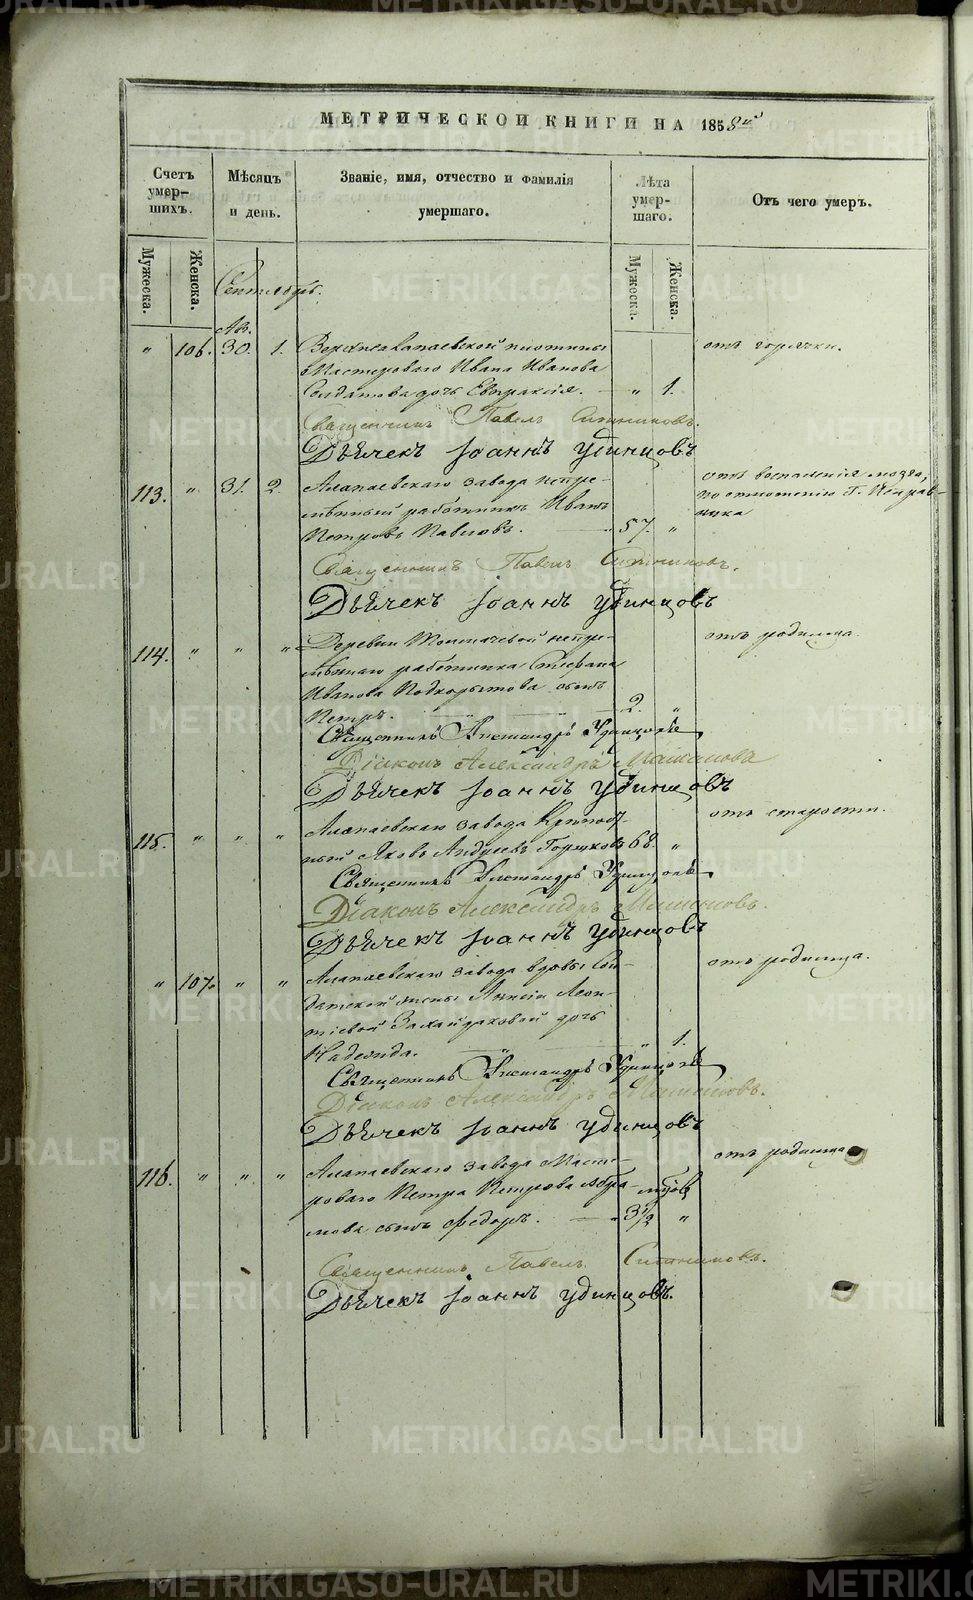 МЕТРИЧЕСКОЙ КНИГИ НА 1858й
Счетъ умер-
шихъ.
Мѣсяцъ
и день.
Званіе, имя, отчество и фамилія
умершаго.
Лѣта
умер-
шаго.
Отъ чего умеръ.
Мужеска.
Женска.
Мужеска.
Женска.
Сентябрь.
Ав.
" 106. 30. 1. Верхнеалапаевской плотины отъ горячки.
Мастероваго Ивана Иванова
Солдатова дочь Евпраксія. " 1.
Священникъ Павелъ Ситниковъ.
Дьячекъ Іоаннъ Удинцовъ
113. " 31. 2. Алапаевскаго завода непре- отъ воспаленія мозга,
мѣнный работникъ Иванъ по отношенію Г. Исправ-
Петровъ Павловъ. 57. " ника
Священникъ Павелъ Ситниковъ.
Дьячекъ Іоаннъ Удинцовъ
114. " " " Деревни Толмачевой непре- отъ родимца.
мѣннаго работника Стефана
Иванова Подкорытова сынъ
Петръ. 2. "
Священникъ Александръ Удинцовъ
Діаконъ Александръ
Дьячекъ Іоаннъ Удинцовъ
115. " " " Алапаевскаго завода отъ старости.
Яковъ Андреевъ Горшковъ 68 "
Священникъ Александръ Удинцовъ
Діаконъ Александръ
Дьячекъ Іоаннъ Удинцовъ
" 107. " " Алапаевскаго завода вдовы Сол- отъ родимца.
датской жены Леон-
тіевой дочь
Надежда. " 1.
Священникъ Александръ Удинцовъ
Діаконъ Александръ
Дьячекъ Іоаннъ Удинцовъ
116. " " " Алапаевскаго завода Масте- отъ родимца
роваго Петра Петрова Абра-
мова сынъ Ѳедоръ. 3½ "
Священникъ Павелъ Ситниковъ.
Дьячекъ Іоаннъ Удинцовъ.
METRIKI.GASO-URAL.RU